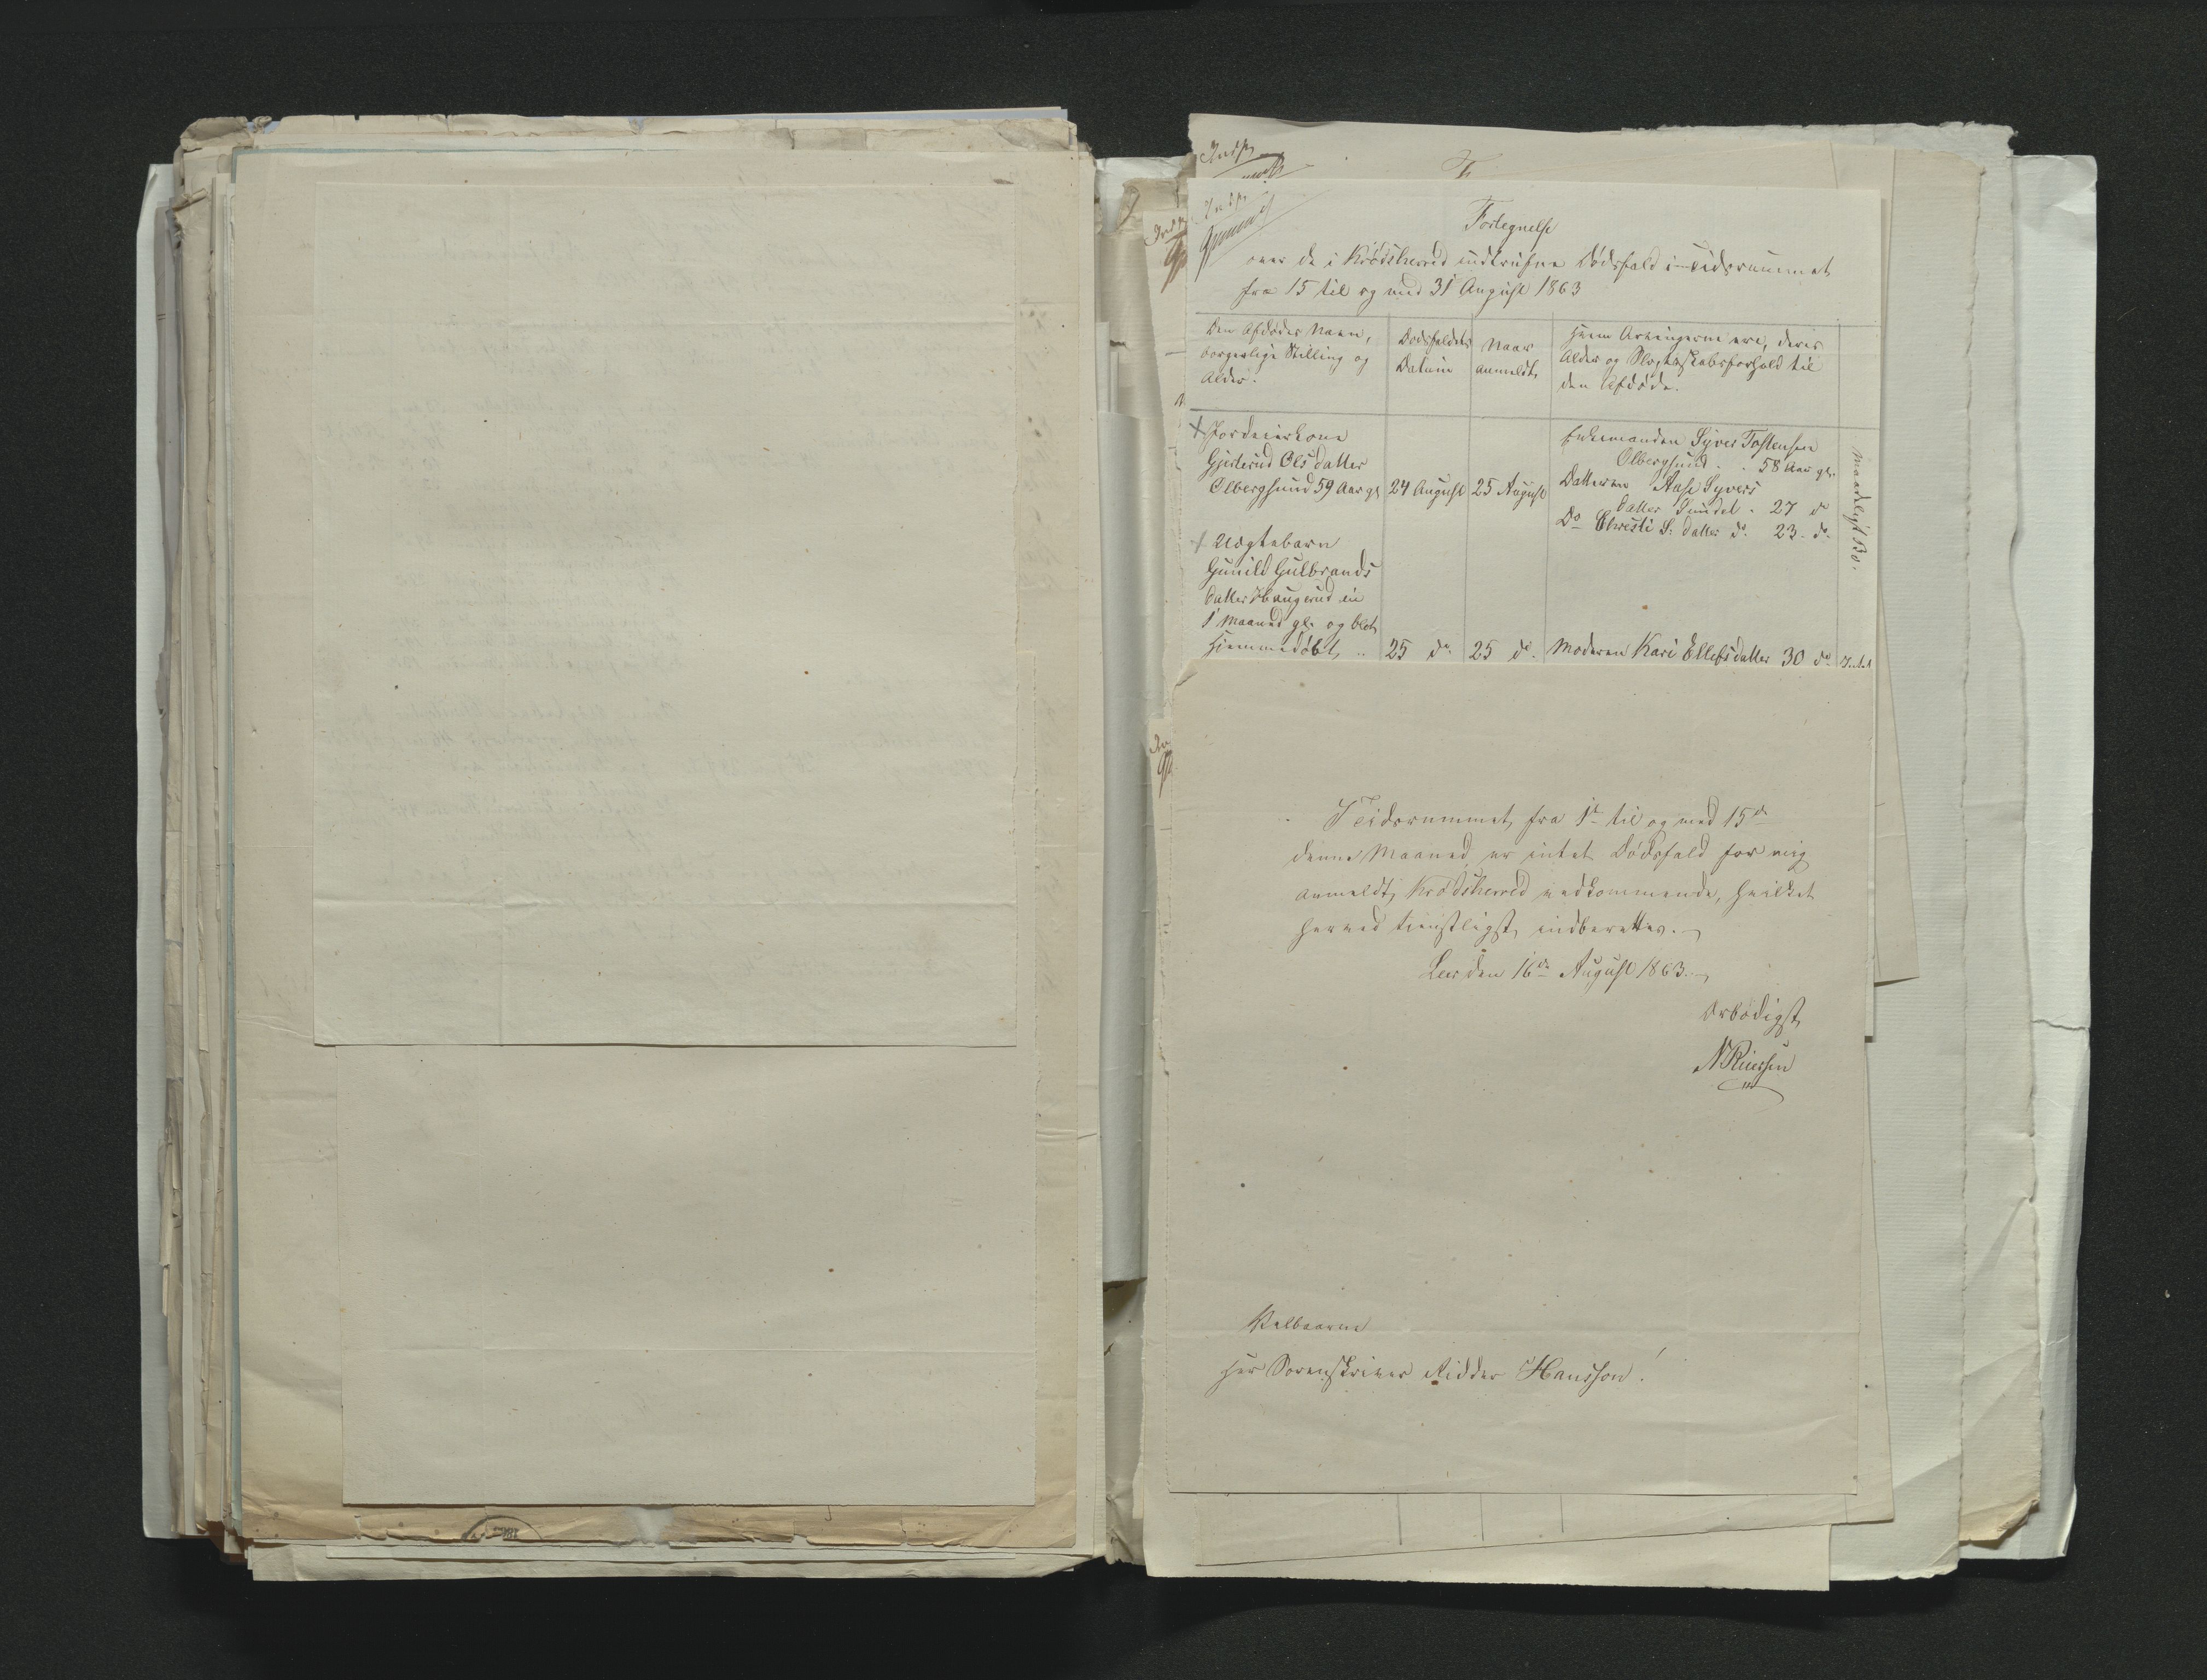 Indf.
Fortegnelse
over de i Krødsherred indtrufne Dødsfald i Tidsrummet
fra 15 til og med 31 August 1863
Den Afdødes Navn,
borgerlige Stilling og
Alder.
Dødsfaldets
Datum
Naar
anmeldt,
Hvem Arvingerne ere, deres
Alder og Slægtskabsforhold til
den Afdøde.
Jordeierkone
Gjertrud Olsdatter
Olbergsund 59 Aar gl
24 August
25 August
Enkemanden Syver Tostensen
Olbergsund . . 58 Aar gl.
Datteren Aase Syvers
datter Sundet . 27 do
Do Christi S: datter do. 23. do.
Uægtebarn
Gunild Gulbrands
datter Haugerud ei
1 Maaned gl. og blot
Hjemmedøbt, ..
25 do.
25 do.
Moderen Kari Ellefsdatter 30 do
I Tidsrummet, fra 1ste til og med 15de
denne Maaned er intet Dødsfald for mig
anmeldt, Krødsherred vedkommende, hvilket
herved tienstligst, indberettes.
Leer den 16de August 1863.
Ærbødigst,
Velbaarne
Herr Sorenskriver Ridder Hansson!